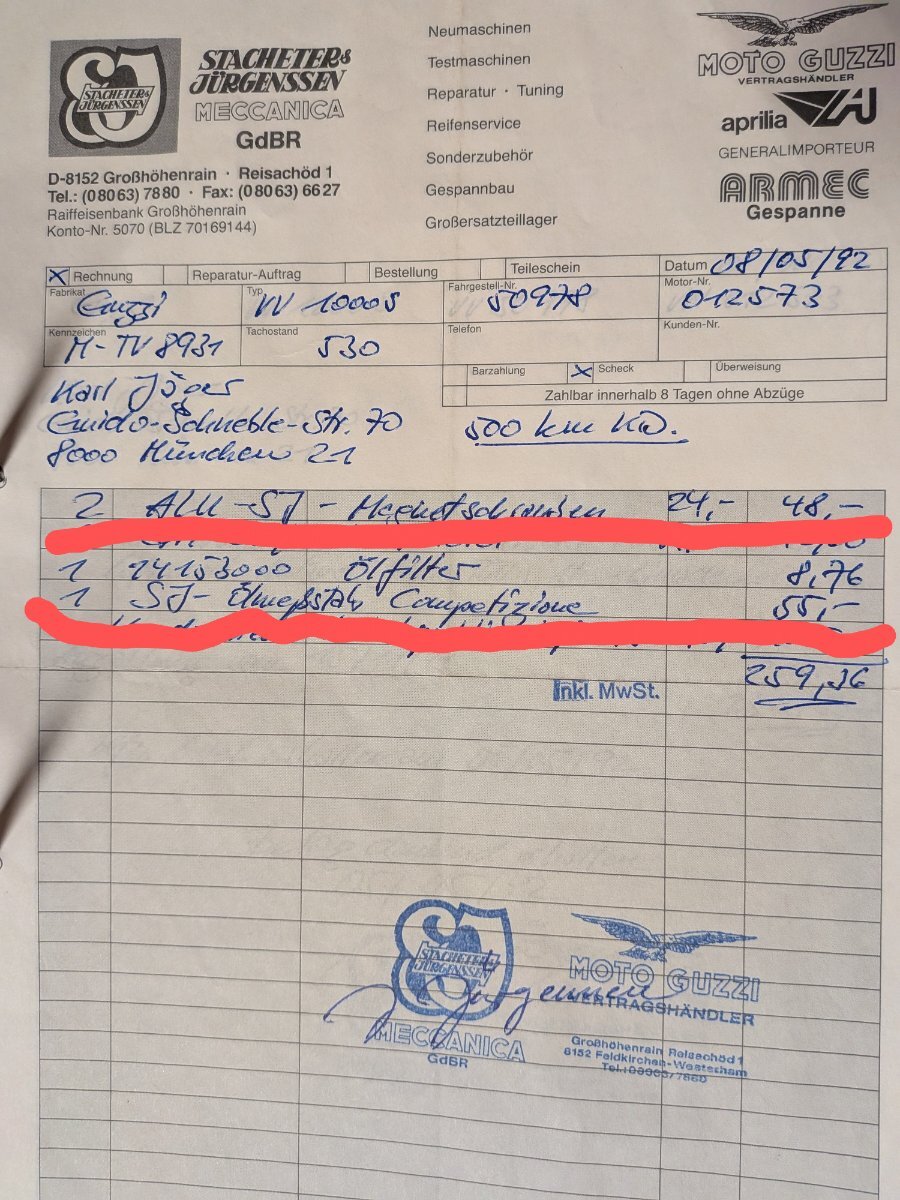 STACHETER &
JÜRGENSSEN
STACHETER &
JÜRGENSSEN
MECCANICA
GdBR
D-8152 Großhöhenrain · Reisachöd 1
Tel.: (08063) 7880 · Fax: (08063) 6627
Raiffeisenbank Großhöhenrain
Konto-Nr. 5070 (BLZ 70169144)
Neumaschinen
Testmaschinen
Reparatur · Tuning
Reifenservice
Sonderzubehör
Gespannbau
Großersatzteillager
MOTO GUZZI
VERTRAGSHÄNDLER
aprilia
GENERALIMPORTEUR
ARMEC
Gespanne
x Rechnung Reparatur-Auftrag Bestellung Teileschein Datum 08/05/92
Fabrikat Typ Fahrgestell-Nr. Motor-Nr.
Guzzi 1000S 50978 012573
Kennzeichen Tachostand Telefon Kunden-Nr.
M-TV 8931 530
Barzahlung x Scheck Überweisung
Zahlbar innerhalb 8 Tagen ohne Abzüge
Karl Jäger
Guido-Schneble-Str. 70
8000 München 21
500 km KD.
2 ALU-SJ - Magnetschrauben 24,- 48,-
1 14153000 Ölfilter 8,76
1 SJ-Ölmeßstab Competizione 55,-
259,
Inkl. MwSt.
STACHETER &
JÜRGENSSEN
MECCANICA
GdBR
Jürgenssen
MOTO GUZZI
VERTRAGSHÄNDLER
Großhöhenrain Reisachöd 1
8152 Feldkirchen-Westerham
Tel.: 08063/7880